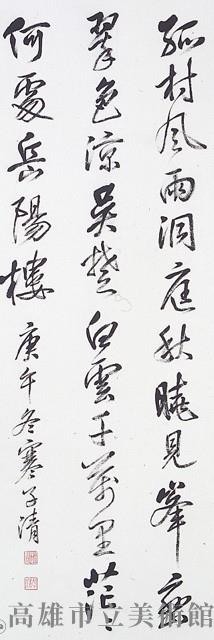 孤村風雨洞庭秋曉見峯巒
翠色涼吳楚白雲千萬里茫〻
何處岳陽樓
庚午冬寒子清
高雄市立美術館